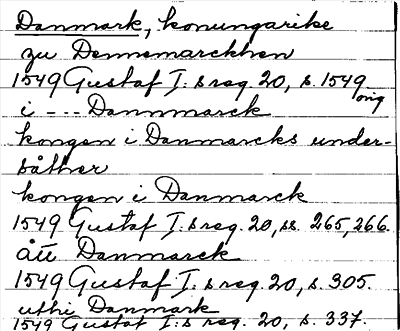 Danmark, konungarike
zu Dennemarckhen
1549 Gustaf I:s reg. 20, s. 1549
orig
i --- Dannmarck
kongen i Danmarcks under-
såther
kongen i Danmarck
1549 Gustaf I:s reg. 20, ss. 265, 266.
ått Danmarck
1549 Gustaf I:s reg. 20, s. 305.
uthi Danmark
1549 Gustaf I:s reg. 20, s. 337.